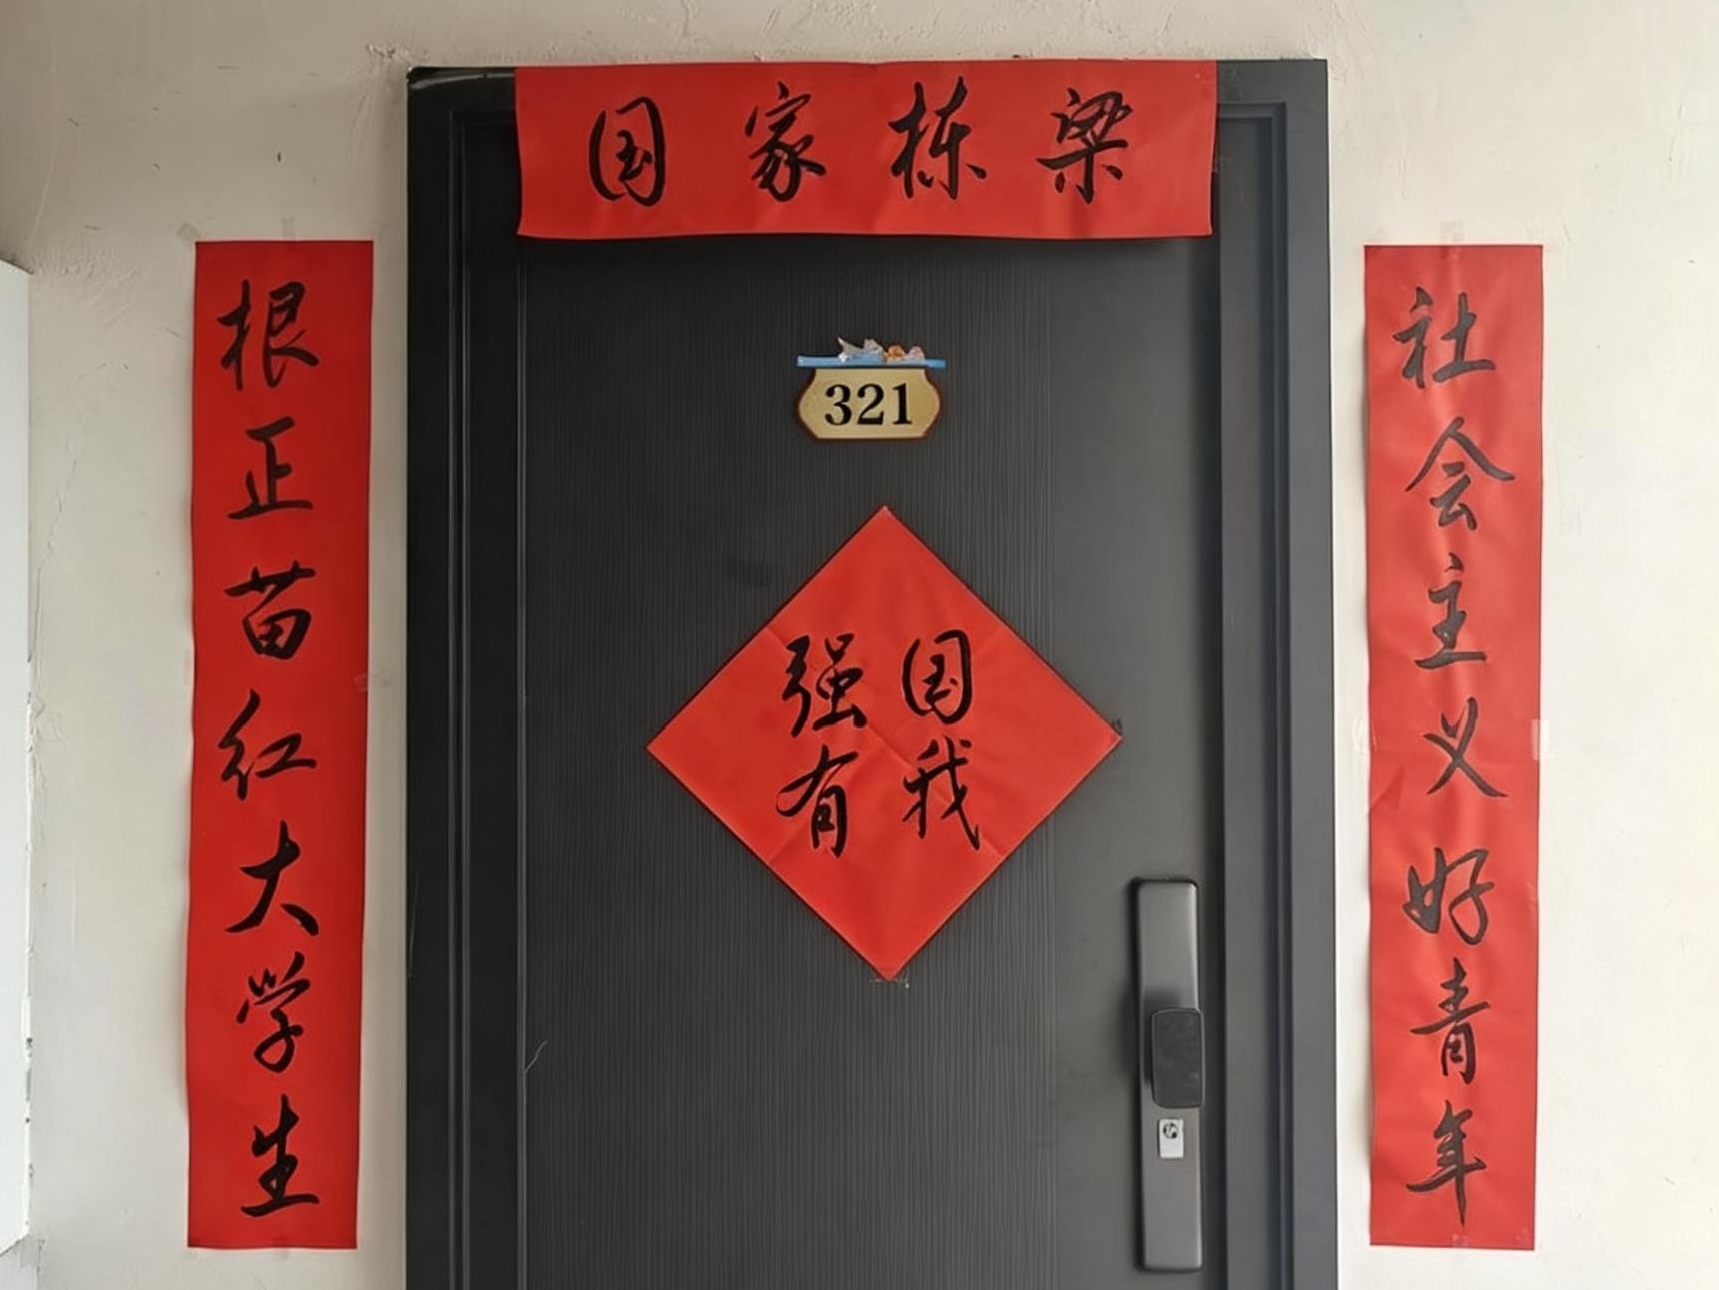 国家栋梁
根正苗红大学生
社会主义好青年
321
强国
有我